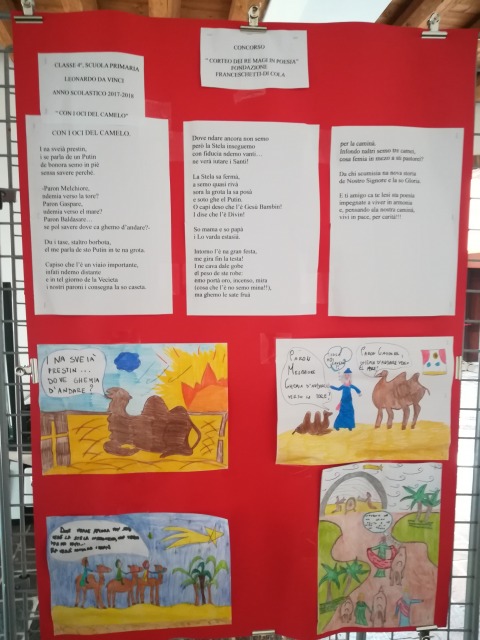 CLASSE 4°, SCUOLA PRIMARIA
LEONARDO DA VINCI
ANNO SCOLASTICO 2017-2018
"CON I OCI DEL CAMELO"
CONCORSO
" CORTEO DEI RE MAGI IN POESIA"
FONDAZIONE
FRANCESCHETTI DI COLA
CON I OCI DEL CAMELO.
I na sveià prestin,
i se parla de un Putin
de bonora semo in piè
senza savere perchè.
-Paron Melchiore,
ndemia verso la tore?
Paron Gaspare,
ndemia verso el mare?
Paron Baldasare...
se pol savere dove ca ghemo d'andare?-
Du i tase, staltro borbota,
el me parla de sto Putin in te na grota.
Capiso che l'è un viaio importante,
infati ndemo distante
e in tel giorno de la Vecieta
i nostri paroni i consegna la so caseta.
Dove ndare ancora non semo
però la Stela inseguemo
con fiducia ndemo vanti...
ne verà iutare i Santi!
La Stela sa fermà,
a semo quasi rivà
sora la grota la sa posà
e soto ghe el Putin.
O capì deso che l'è Gesù Bambin!
I dise che l'è Divin!
So mama e so papà
i Lo varda estasià.
Intorno l'è na gran festa,
me gira fin la testa!
I ne cava dale gobe
el peso de ste robe:
emo portà oro, incenso, mira
(cosa che l'è no semo mina!!),
ma ghemo le sate fruà
per la camina.
Infondo naltri semo tre camei,
cosa femia in mezo a sti pastorei?
Da chi scuminsia na nova storia
de Nostro Signore e la so Gloria.
E ti amigo ca te lesi sta poesia
impegnate a viver in armonia
e, pensando ala nostra camina,
vivi in pace, per carità!!!
I NA SVEIÀ
PRESTIN...
DOVE GHEMIA
D'ANDARE?
PARON
MELCHIORE
VERSO LA TORE?
PARON GASPARE,